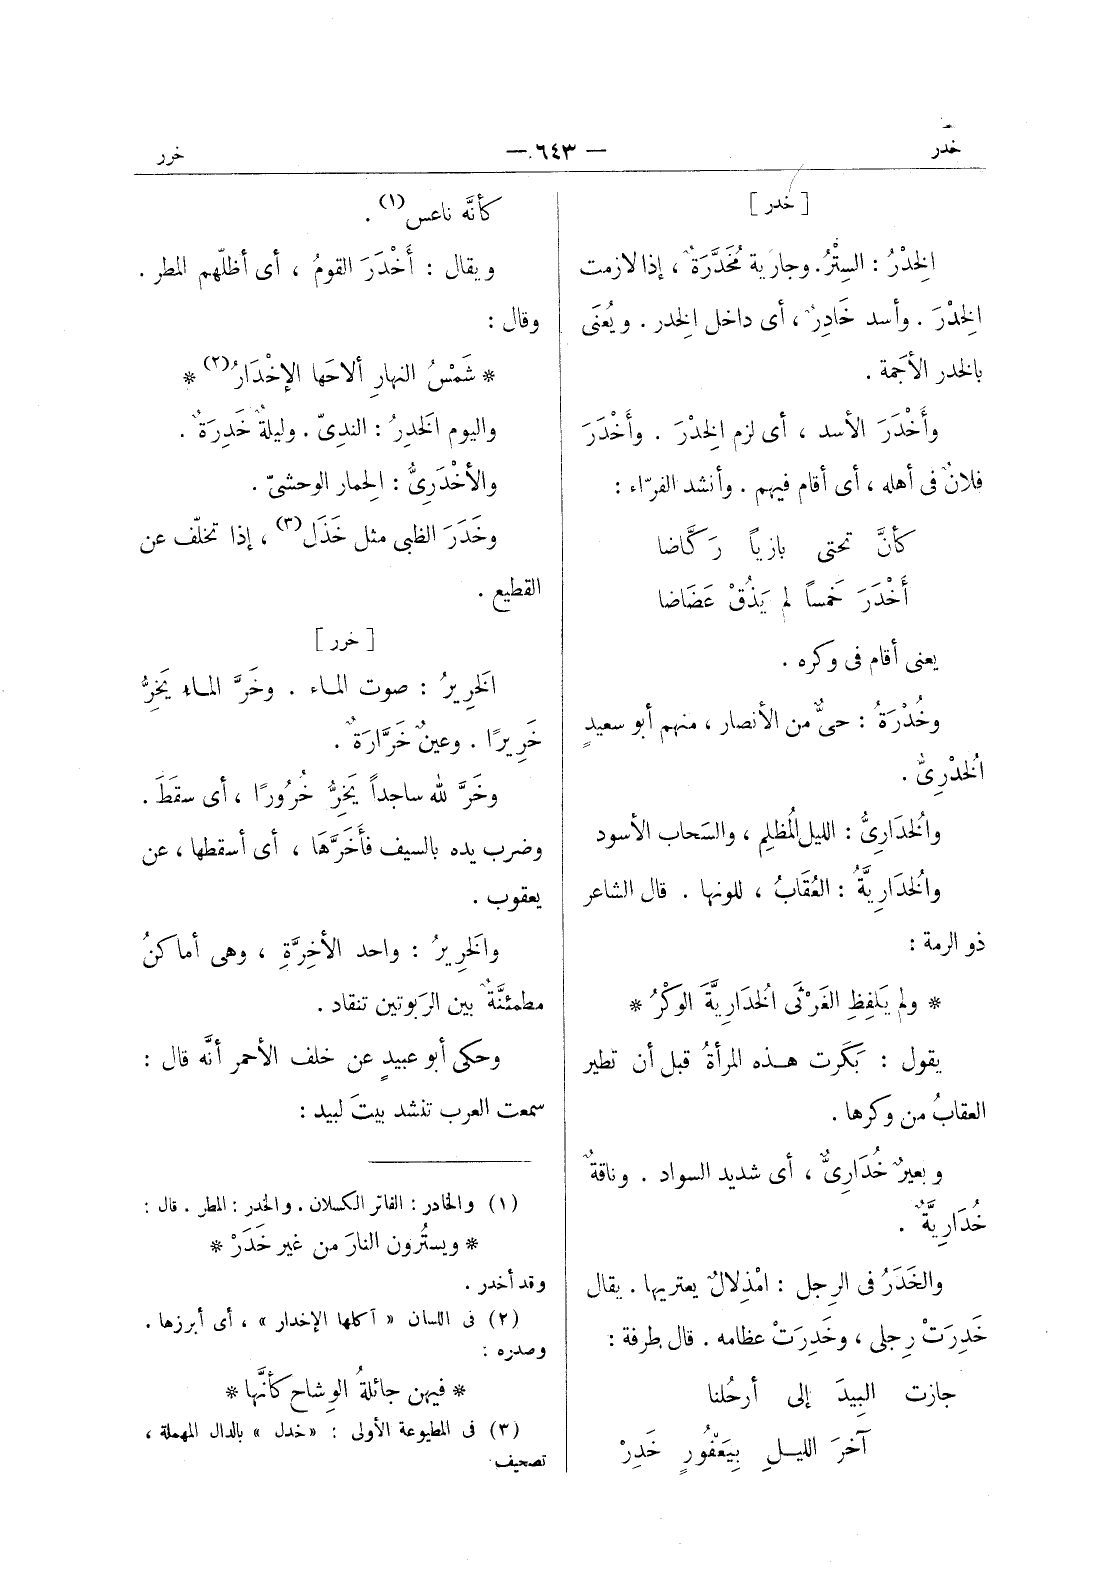 خدر
— ٦٤٣ —
خرر
[ خدر ]
الخِدْرُ : السِتْرُ. وجارية مُخَدَّرَةٌ ، إذا لازمت
الخِدْرَ . وأسد خَادِرٌ ، أى داخل الخدر . ويُعْنَى
بالخدر الأجَمة .
وأَخْدَرَ الأسد ، أى لزم الخِدْرَ . وأَخْدَرَ
فلانٌ فى أهله ، أى أقام فيهم . وأنشد الفرّاء :
كأنَّ تحتى بازياً رَكَّاضا
أَخْدَرَ خَمساً لم يَذُقْ عَضَاضا
يعنى أقام فى وكره .
وخُدْرَةُ : حىٌّ من الأنصار ، منهم أبو سعيدٍ
الخُدْرِىُّ .
والخُدَارِىُّ : الليل المُظلِم ، والسَحاب الأسود
والخُدَارِيَّةُ : العُقَابُ ، للونها . قال الشاعر
ذو الرمة :
* ولم يَلفِظِ الغَرْثَى الخُدَارِيَّةَ الوَكْرُ *
يقول : بَكَرت هـذه المرأةُ قبل أن تطير
العقابُ من وكرها .
وبعيرٌ خُدَارِىٌّ ، أى شديد السواد . وناقةٌ
خُدَارِيَّةٌ .
والخَدَرُ فى الرِجل : امْذِلالٌ يعتريها . يقال
خَدِرَتْ رِجلى ، وخَدِرَتْ عظامه . قال طرفة :
جازت البِيدَ إلى أرحُلنا
آخرَ الليـلِ بِيَعْفُورٍ خَدِرْ
كأنَّه ناعس(١) .
ويقال : أَخْدَرَ القومُ ، أى أظلّهم المطر .
وقال :
* شَمْسُ النهارِ ألاحَها الإخْدَارُ(٢) *
واليوم الخَدِرُ : الندِىّ . وليلةٌ خَدِرَةٌ .
والأخْدَرِىُّ : الحمار الوحشىّ .
وخَدَرَ الظبى مثل خَذَل(٣) ، إذا تخلّف عن
القطيع .
[ خرر ]
الخَرِيرُ : صوت المـاء . وخَرَّ المـاء يَخِرُّ
خَرِيرًا . وعينٌ خَرَّارَةٌ .
وخَرَّ لله ساجداً يَخِرُّ خُرُورًا ، أى سقَطَ .
وضرب يده بالسيف فأَخَرَّهَا ، أى أسقطها ، عن
يعقوب .
والخَرِيرُ : واحد الأخِرَّةِ ، وهى أماكنُ
مطمئنَّةٌ بين الرَبوتين تنقاد .
وحكى أبو عبيدٍ عن خلف الأحمر أنَّه قال :
سمعت العرب تنشد بيتَ لبيد :
(١) والخادر : الفاتر الكسلان . والخدر : المطر . قال :
* ويستُرون النارَ من غير خَدَرْ *
وقد أخدر .
(٢) فى اللسان « آكلها الإخدار » ، أى أبرزها .
وصدره :
* فيهن جائلةُ الوِشاح كأنَّها *
(٣) فى المطبوعة الأولى : «خدل » بالدال المهملة ،
تصحيف